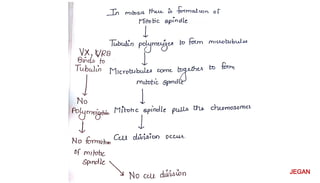 In mitosis there is formation of
Mitotic spindle
Tubulin polymerizes to form microtubules
VX, VRB
Binds to
Tubulin
Microtubules come together to form
mitotic spindle
No
Polymerization
Mitotic spindle pulls the chromosomes
No formation
of mitotic
spindle
Cell division occur
No cell division
JEGAN